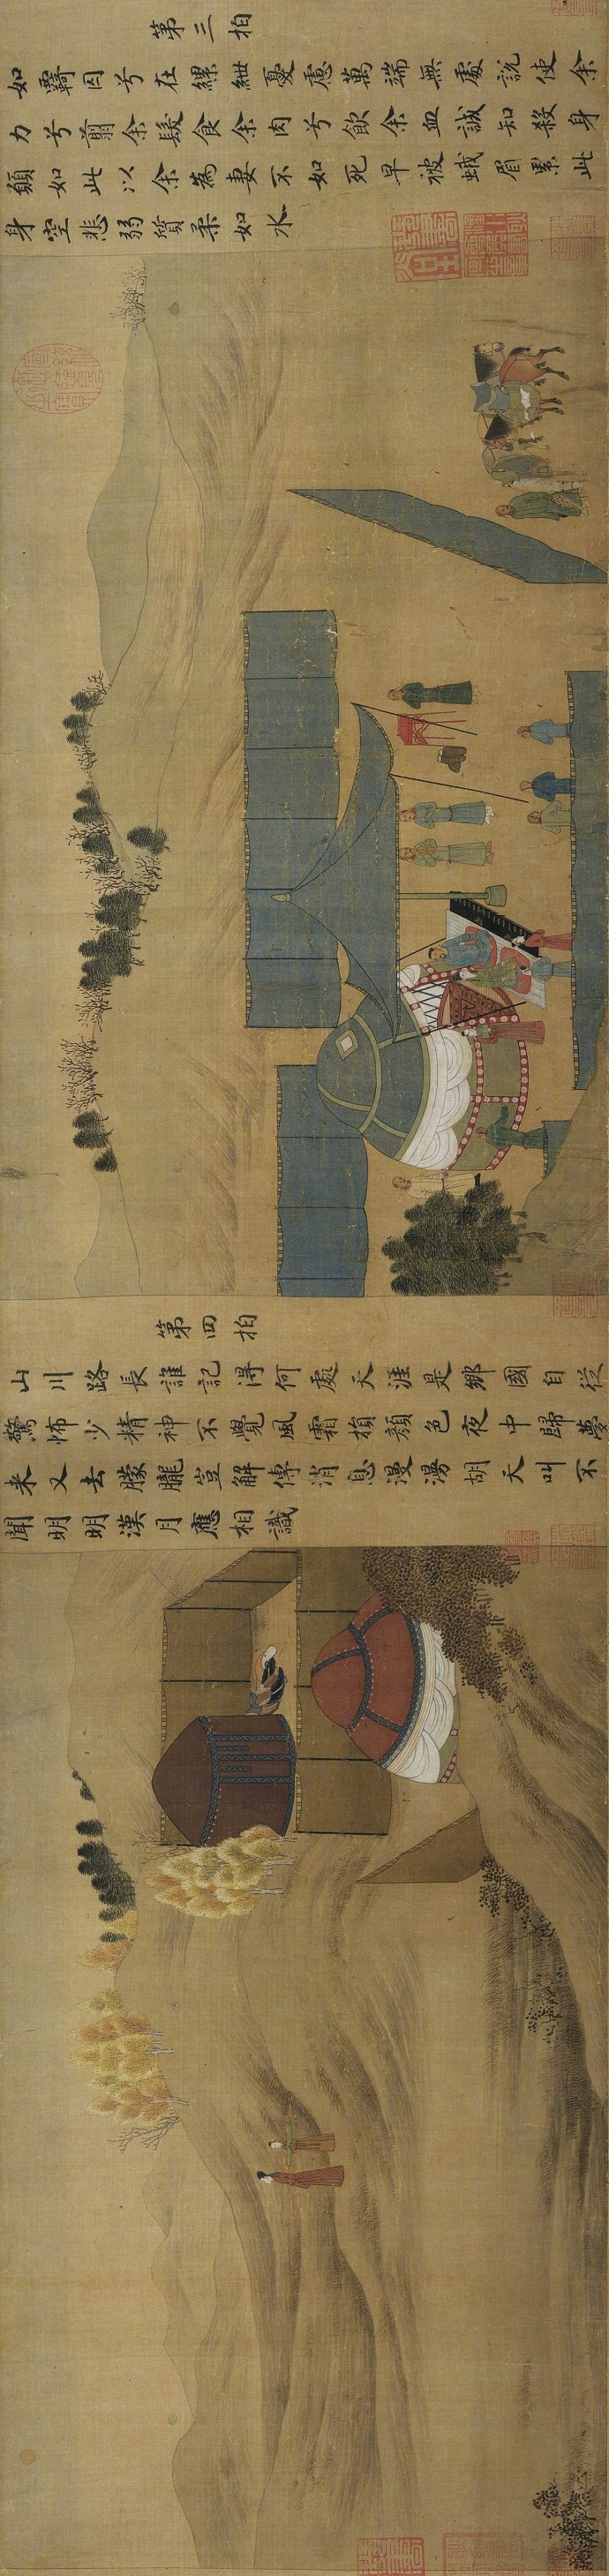 第三拍
如羈囚兮在縲紲憂慮萬端無處說使余
力兮翦余髮食余肉兮飲余血誠知殺身
願如此以余為妻不如死早被蛾眉累此
身空悲弱質柔如水
第四拍
山川路長誰記得何處天涯是鄉國自從
驚怖少精神不覺風霜損顏色夜中歸夢
来又去朦朧豈解傳消息漫漫胡天叫不
聞明明漢月應相識